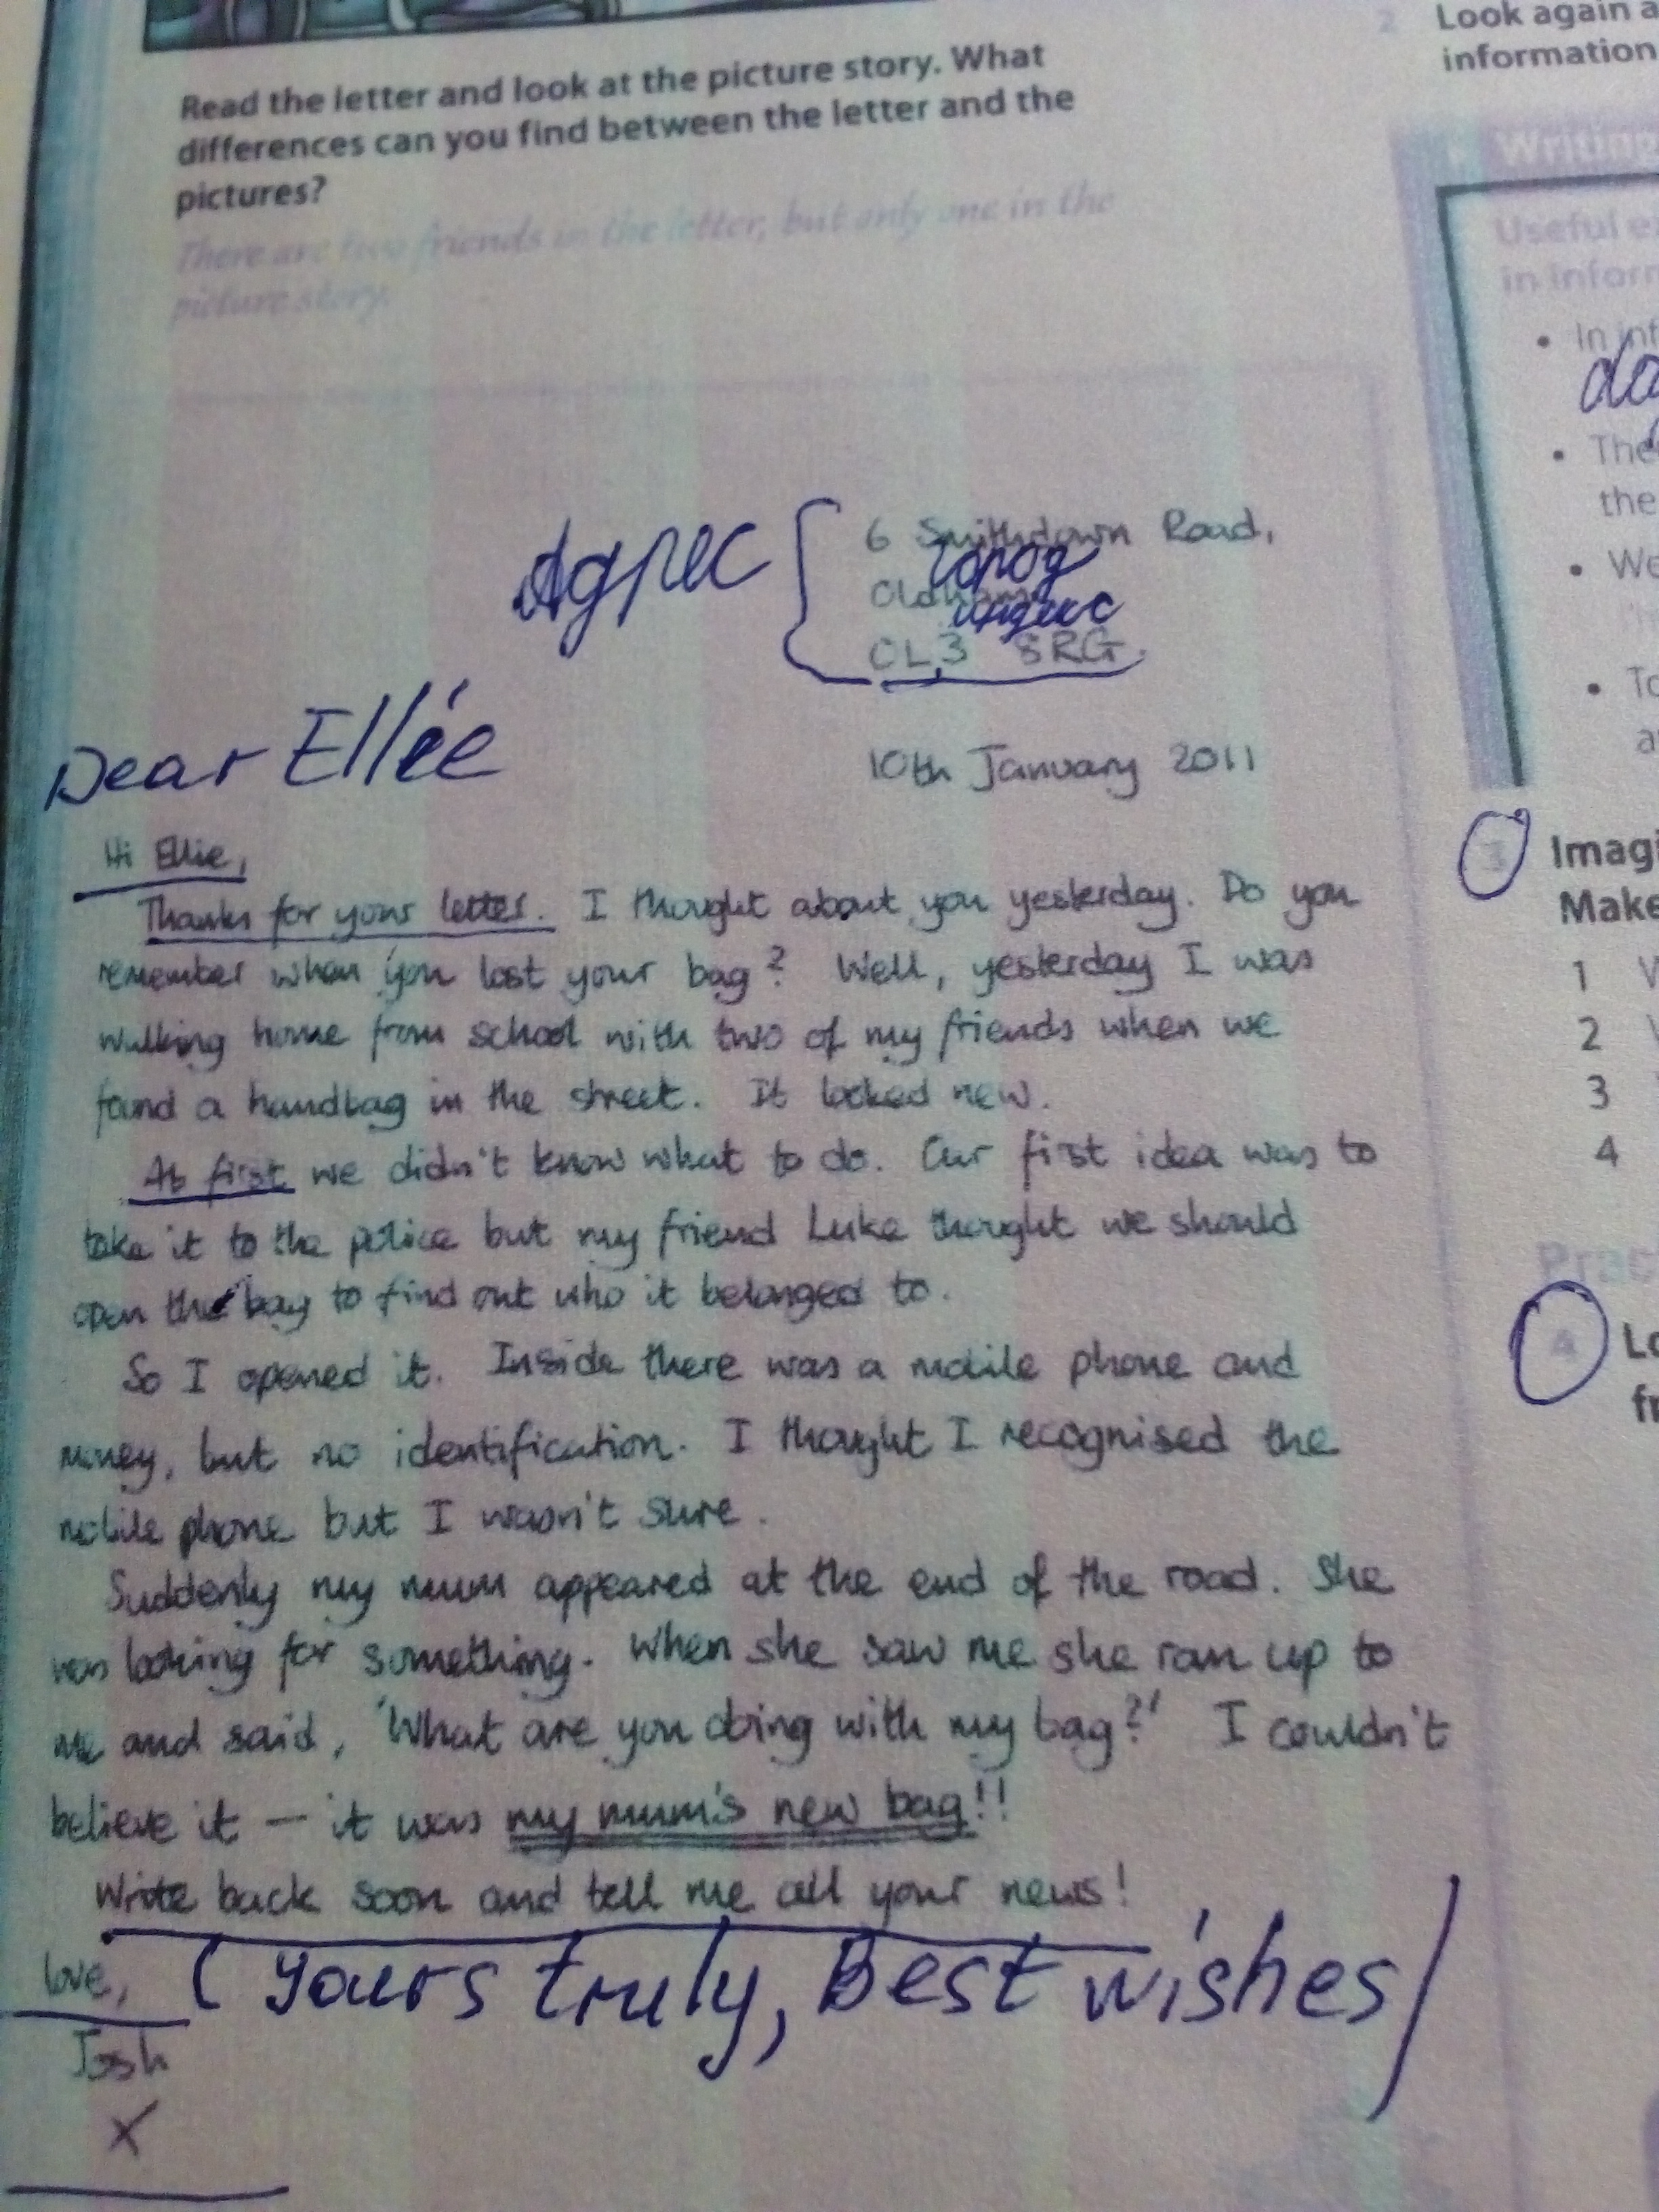 Read the letter and look at the picture story. What
differences can you find between the letter and the
pictures?
There are two friends in the letter, but only one in the
picture story.
Адрес
6 Smithdown Road,
город
Oldham
индекс
CL3 8RG.
Dear Ellie
10th January 2011
Hi Ellie,
Thanks for your letter. I thought about you yesterday. Do you
remember when you lost your bag? Well, yesterday I was
walking home from school with two of my friends when we
found a handbag in the street. It looked new.
At first we didn't know what to do. Our first idea was to
take it to the police but my friend Luke thought we should
open the bag to find out who it belonged to.
So I opened it. Inside there was a mobile phone and
money, but no identification. I thought I recognised the
mobile phone but I wasn't sure.
Suddenly my mum appeared at the end of the road. She
was looking for something. When she saw me she ran up to
me and said, 'What are you doing with my bag?' I couldn't
believe it – it was my mum's new bag!!
Write back soon and tell me all your news!
love, (Yours truly, Best wishes)
Josh
X
2 Look again a
information
Writing
Useful e
in inform
• In inf
do
• The
the
• We
• To
a
3 Imagi
Make
1
2
3
4
Prac
4 Lo
fr